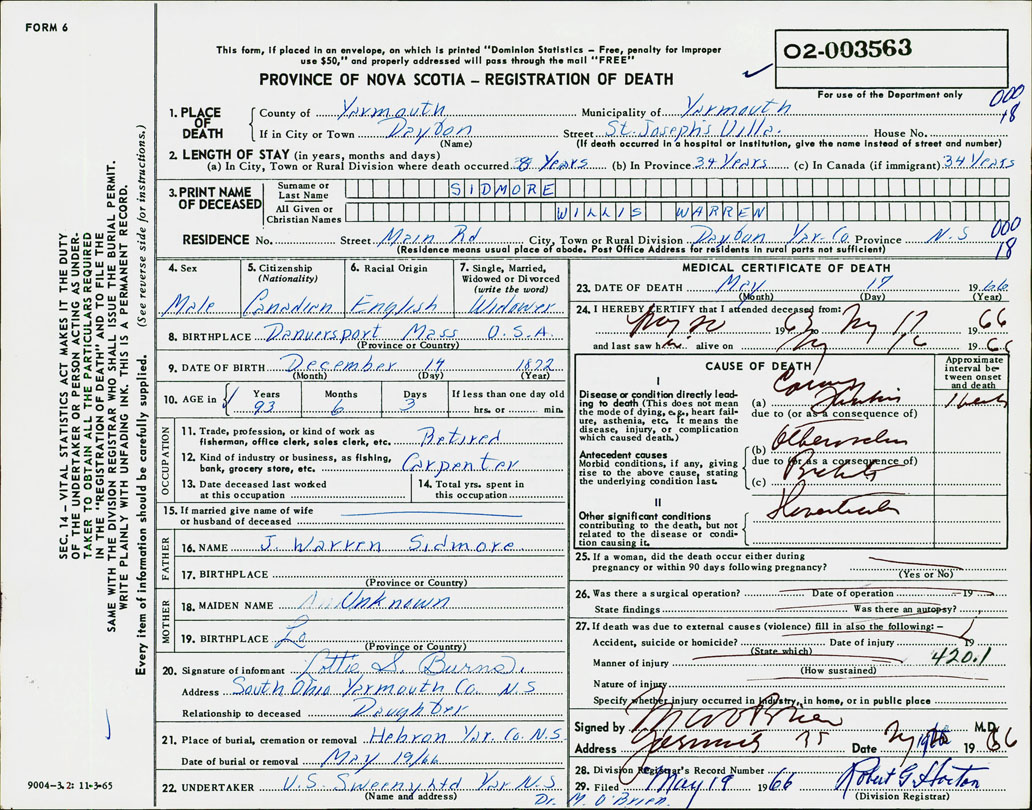 FORM 6
This form, if placed in an envelope, on which is printed "Dominion Statistics – Free, penalty for improper
use $50," and properly addressed will pass through the mail "FREE"
PROVINCE OF NOVA SCOTIA – REGISTRATION OF DEATH
02-003563
For use of the Department only
000
18
1. PLACE OF DEATH
County of Yarmouth Municipality of Yarmouth
If in City or Town Dayton Street St. Joseph's Villa. House No.
(Name) (If death occurred in a hospital or institution, give the name instead of street and number)
2. LENGTH OF STAY (in years, months and days)
(a) In City, Town or Rural Division where death occurred 8 Years (b) In Province 34 Years (c) In Canada (if immigrant) 34 Years
3. PRINT NAME OF DECEASED
Surname or Last Name SIDMORE
All Given or Christian Names WILLIS WARREN
RESIDENCE No. Street Main Rd City, Town or Rural Division Dayton Yar. Co. Province N.S
000
18
(Residence means usual place of abode. Post Office Address for residents in rural parts not sufficient)
4. Sex
Male
5. Citizenship
(Nationality)
Canadian
6. Racial Origin
English
7. Single, Married,
Widowed or Divorced
(write the word)
Widower
8. BIRTHPLACE Danversport Mass U.S.A.
(Province or Country)
9. DATE OF BIRTH December 14 1872
(Month) (Day) (Year)
10. AGE in Years Months Days If less than one day old
93 6 3 hrs. or min.
OCCUPATION
11. Trade, profession, or kind of work as
fisherman, office clerk, sales clerk, etc. Retired
12. Kind of industry or business, as fishing,
bank, grocery store, etc. Carpenter
13. Date deceased last worked
at this occupation
14. Total yrs. spent in
this occupation
15. If married give name of wife
or husband of deceased
FATHER
16. NAME J. Warren Sidmore
17. BIRTHPLACE
(Province or Country)
MOTHER
18. MAIDEN NAME Unknown
19. BIRTHPLACE
(Province or Country)
20. Signature of informant Lottie S. Burns.
Address South Ohio Yarmouth Co. N.S
Relationship to deceased Daughter
21. Place of burial, cremation or removal Hebron Yar. Co. N.S.
Date of burial or removal May 19/66
22. UNDERTAKER V.S. Sweeny Ltd Yar N.S.
(Name and address)
Dr. M. O'Brien.
MEDICAL CERTIFICATE OF DEATH
23. DATE OF DEATH May 17 1966
(Month) (Day) (Year)
24. I HEREBY CERTIFY that I attended deceased from:
19 17 1966
and last saw h alive on 16 19
CAUSE OF DEATH
Approximate
interval be-
tween onset
and death
I
Disease or condition directly lead-
ing to death (This does not mean
the mode of dying, e.g., heart failure,
asthenia, etc. It means the
disease, injury, or complication
which caused death.)
(a)
due to (or as a consequence of)
Antecedent causes
Morbid conditions, if any, giving
rise to the above cause, stating
the underlying condition last.
(b)
due to (or as a consequence of)
(c)
II
Other significant conditions
contributing to the death, but not
related to the disease or condi-
tion causing it.
25. If a woman, did the death occur either during
pregnancy or within 90 days following pregnancy?
(Yes or No)
26. Was there a surgical operation? Date of operation 19
State findings Was there an autopsy?
27. If death was due to external causes (violence) fill in also the following: –
Accident, suicide or homicide? Date of injury 19
(State which)
Manner of injury 420.1
(How sustained)
Nature of injury
Specify whether injury occurred in industry, in home, or in public place
Signed by M.D.
Address Date 1966
28. Division Registrar's Record Number
29. Filed May 19 1966 Robert G. Horton
(Division Registrar)
SEC. 14 – VITAL STATISTICS ACT MAKES IT THE DUTY
OF THE UNDERTAKER OR PERSON ACTING AS UNDER-
TAKER TO OBTAIN ALL THE PARTICULARS REQUIRED
IN THE "REGISTRATION OF DEATH" AND FILE THE
SAME WITH THE DIVISION REGISTRAR WHO SHALL ISSUE THE BURIAL PERMIT.
WRITE PLAINLY WITH UNFADING INK. THIS IS A PERMANENT RECORD.
Every item of information should be carefully supplied. (See reverse side for instructions.)
9004-3.2: 11-3-65